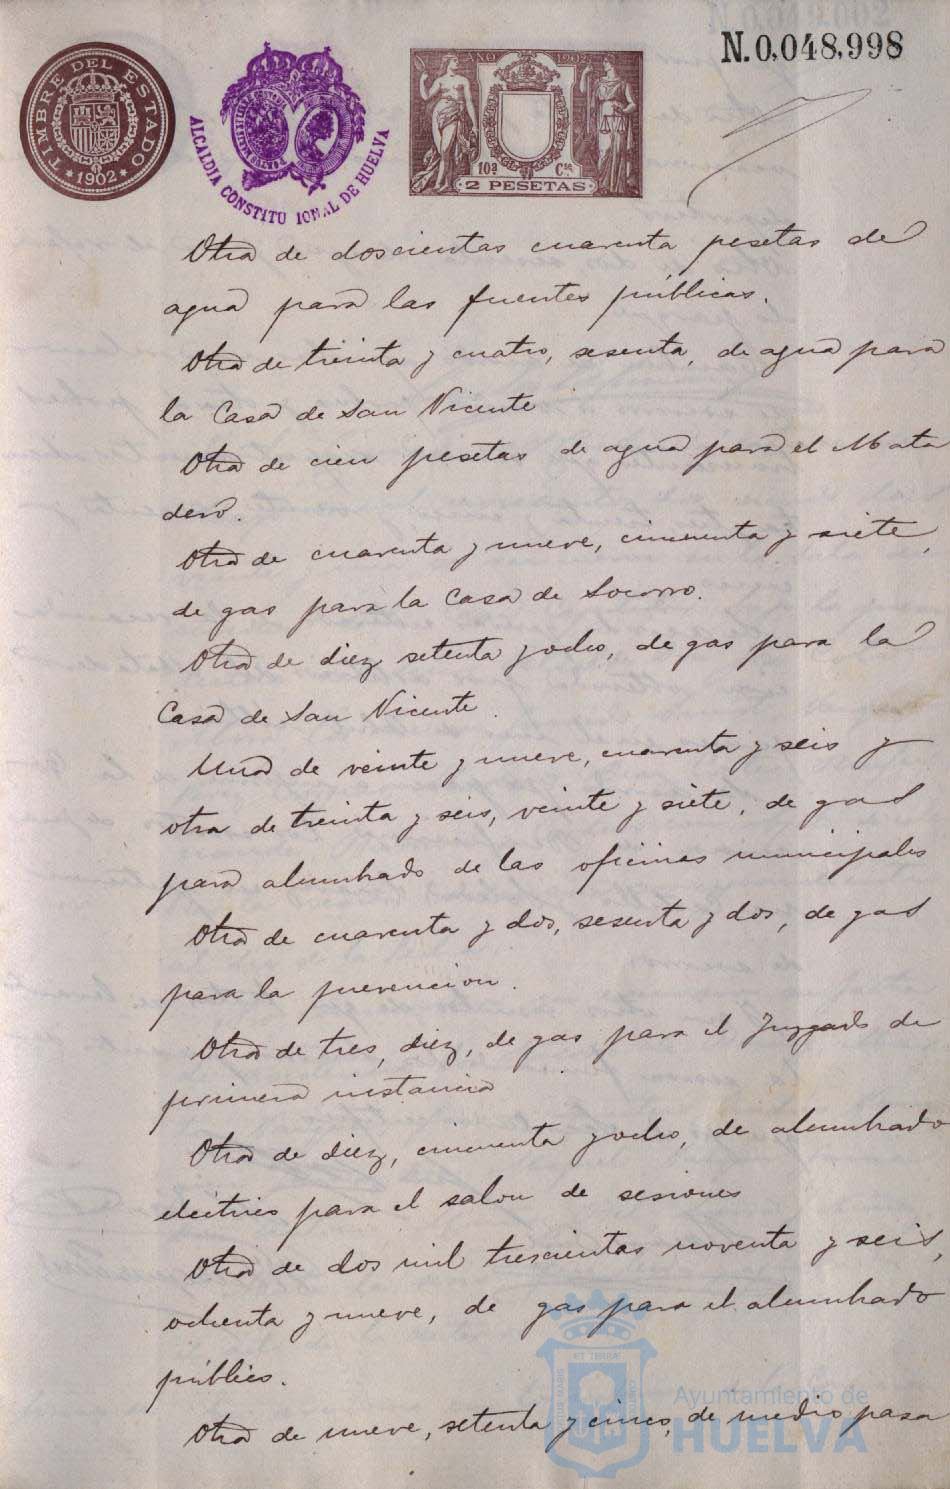 N.0,048,998
TIMBRE DEL ESTADO
*1902*
ALCALDIA CONSTITUCIONAL DE HUELVA
AÑO 1902
10ª Cse
2 PESETAS
Otra de doscientas cuarenta pesetas de
agua para las fuentes públicas.
Otra de treinta y cuatro, sesenta, de agua para
la Casa de San Vicente
Otra de cien pesetas de agua para el Mata
dero.
Otra de cuarenta y nueve, cincuenta y siete,
de gas para la Casa de Socorro.
Otra de diez setenta y ocho, de gas para la
Casa de San Vicente.
Una de veinte y nueve, cuarenta y seis y
otra de treinta y seis, veinte y siete, de gas
para alumbrado de las oficinas municipales
Otra de cuarenta y dos, sesenta y dos, de gas
para la prevencion.
Otra de tres, diez, de gas para el Juzgado de
primera instancia
Otra de diez, cincuenta y ocho, de alumbrado
eléctrico para el salon de sesiones
Otra de dos mil trescientas noventa y seis,
ochenta y nueve, de gas para el alumbrado
público.
Otra de nueve, setenta y cinco, de medio pasa
Ayuntamiento de
HUELVA